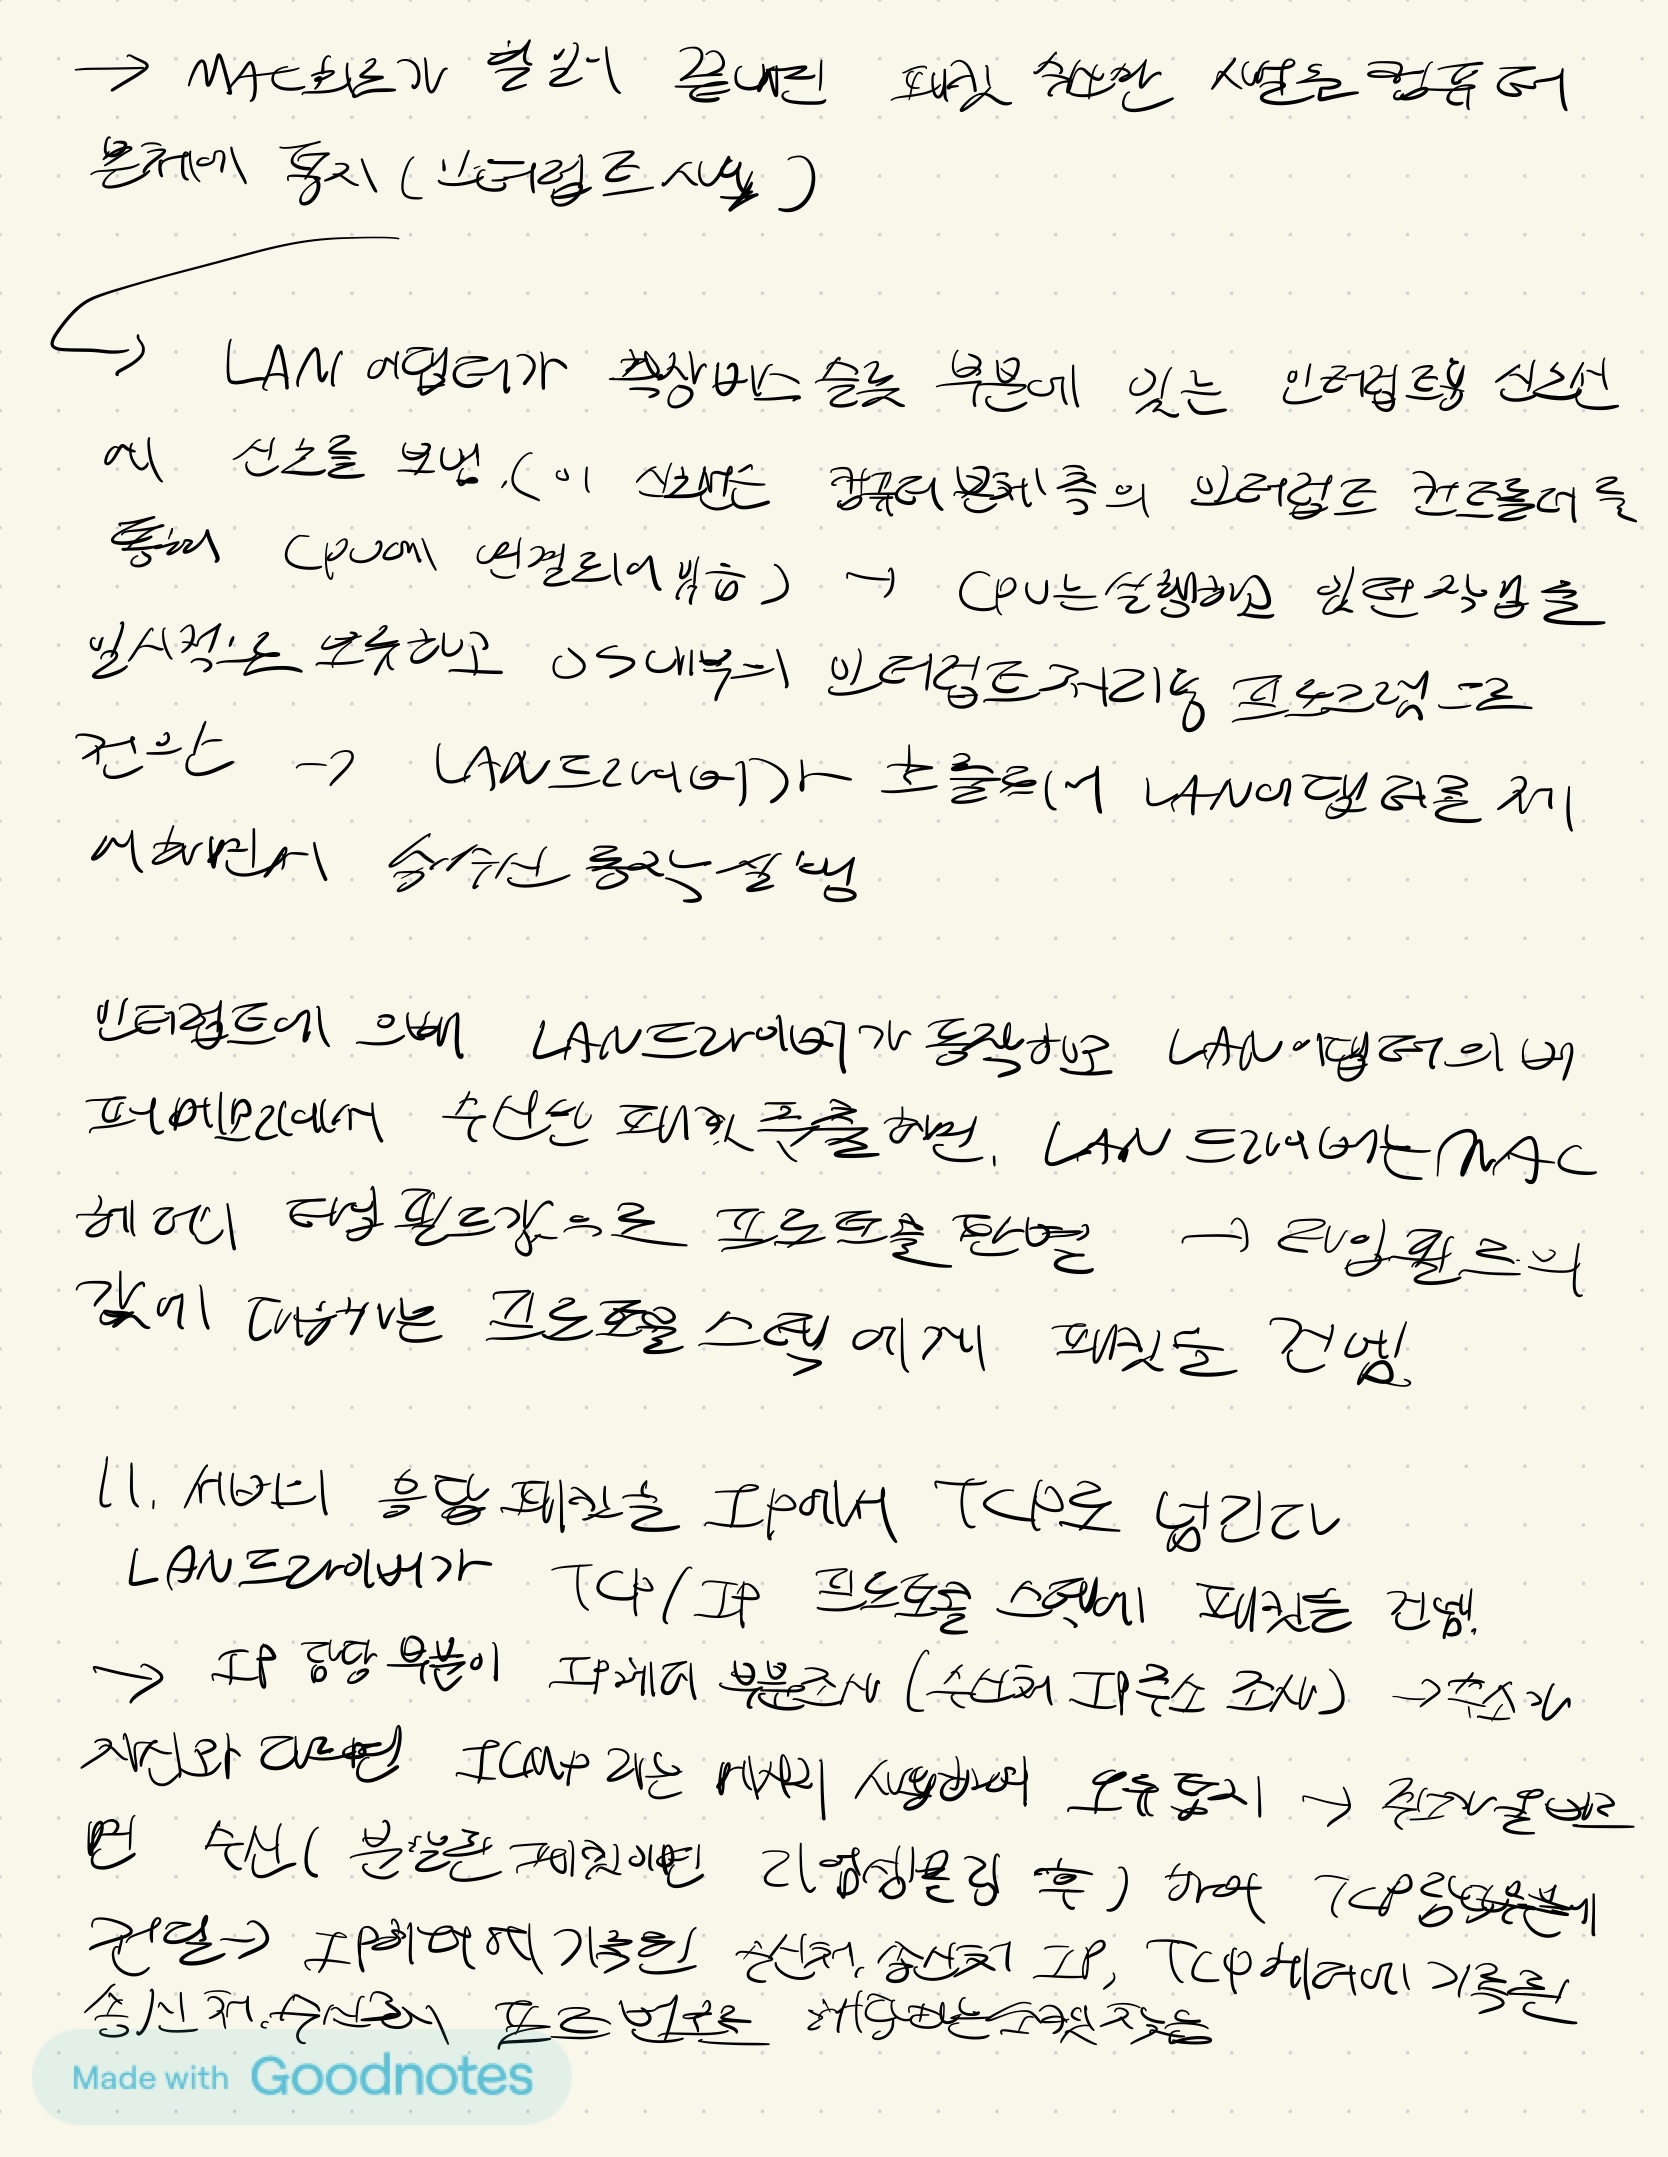 → MAC회로가 할 일이 끝나면 패킷 수신한 사실을 컴퓨터
본체에 통지 (인터럽트 사용)
→ LAN 어댑터가 확장버스 슬롯 부분에 있는 인터럽트용 신호선
에 신호를 보냄. (이 신호선은 컴퓨터 본체 측의 인터럽트 컨트롤러를
통해 CPU에 연결되어 있음) → CPU는 실행하고 있던 작업을
일시적으로 보류하고 OS내부의 인터럽트처리용 프로그램으로
전환 → LAN드라이버가 호출되어 LAN어댑터를 제
어하면서 송수신 동작 실행
인터럽트에 의해 LAN드라이버가 동작하고 LAN어댑터의 버
퍼메모리에서 수신한 패킷 추출하면, LAN 드라이버는 MAC
헤더의 타입 필드값으로 프로토콜 판별 → 타입 필드의
값에 대응하는 프로토콜 스택에게 패킷을 건넴
11. 서버의 응답 패킷을 IP에서 TCP로 넘긴다
LAN드라이버가 TCP/IP 프로토콜 스택에 패킷을 건넴.
→ IP 담당 부분이 IP헤더 부분조사 (수신처 IP주소 조사) → 주소가
자신과 다르면 ICMP라는 메시지 사용하여 오류 통지 → 주소가 올바르
면 수신( 분할된 패킷이면 리어셈블링 후) 하여 TCP담당부분에
전달 → IP헤더에 기록된 수신처, 송신처 IP, TCP헤더에 기록된
송신처, 수신처 포트 번호로 해당하는 소켓 찾음
Made with Goodnotes